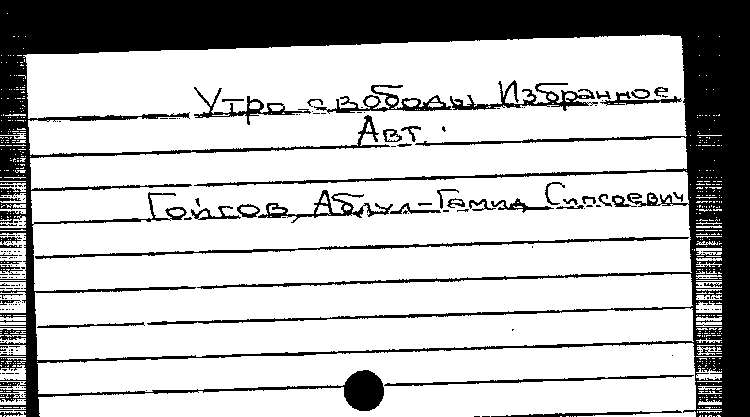 Утро свободы Избранное.
Авт.:
Гойгов, Абдул-Гамид Сипсоевич